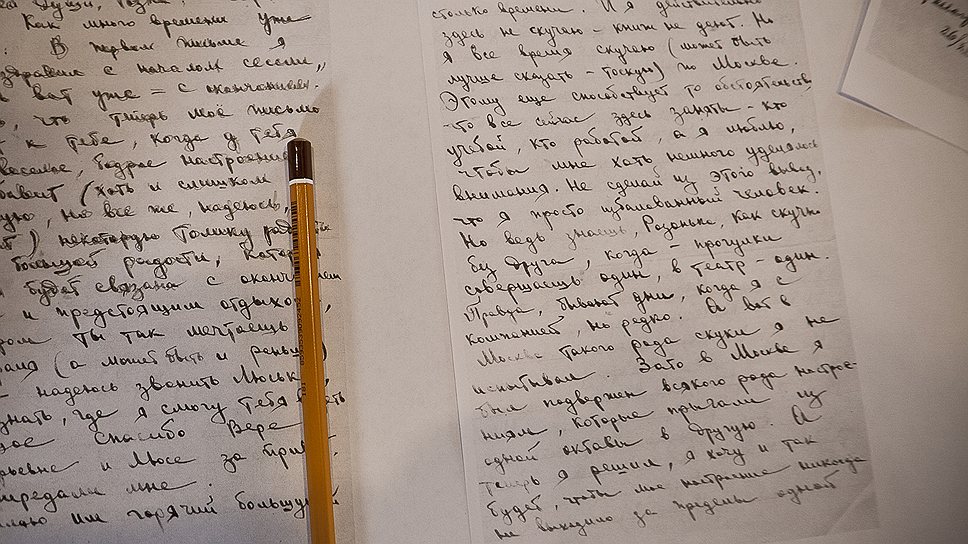 Как много времени уже
. В первом письме я
с началом сессии,
вот уже = с окончанием.
, что теперь моё письмо
к тебе, когда у тебя
веселье, бодрое настроение
(хоть и слишком
, но все же, надеюсь,
) некоторую толику радости
большой радости, которая
будет связана с окончанием
и предстоящим отдыхом,
ты так мечтаешь
(а может быть и раньше)
- надеюсь звонить Люське,
знать, где я смогу тебя
спасибо Вере
и Люсе за
передали мне.
им горячий большущий
столько времени. И я действительно
здесь не скучаю - книги не дают. Но
я все время скучаю (может быть
лучше сказать - тоскую) по Москве.
Этому еще способствует то обстоятельств
что все сейчас здесь заняты - кто
учебой, кто работой, а я люблю,
чтобы мне хоть немного уделялось
внимания. Не сделай из этого вывод,
что я просто избалованный человек.
Но ведь знаешь, Розонька, как скучно
без друга, когда - прогулки
совершаешь один, в театр - один.
Правда, бывают дни, когда я с
компанией, но редко. А вот в
Москве такого рода скуки я не
испытывал. Зато в Москве я
был подвержен всякого рода настрое-
ниям, которые прыгали из
одной октавы в другую. А
теперь я решил, я хочу и так
будет, чтобы мое настроение никогда
не выходило за пределы одной